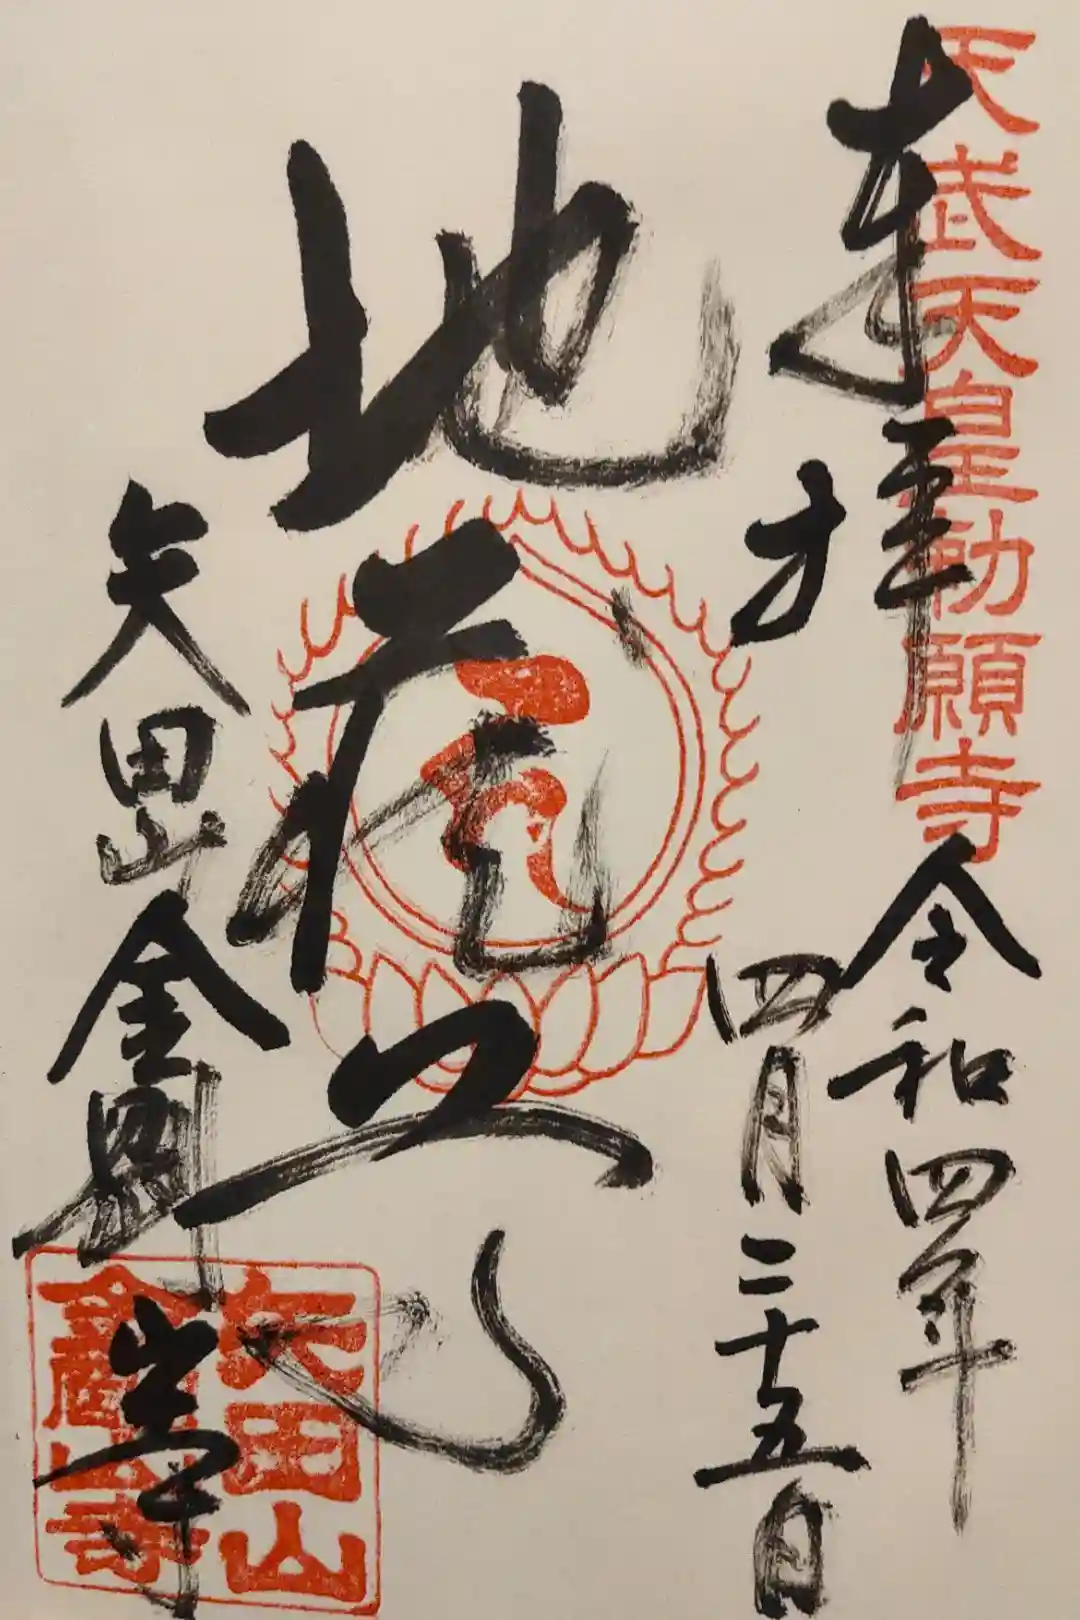 天武天皇勅願寺
奉拝
令和四年
四月二十五日
地蔵
矢田山金剛山寺
矢田山
金剛山寺